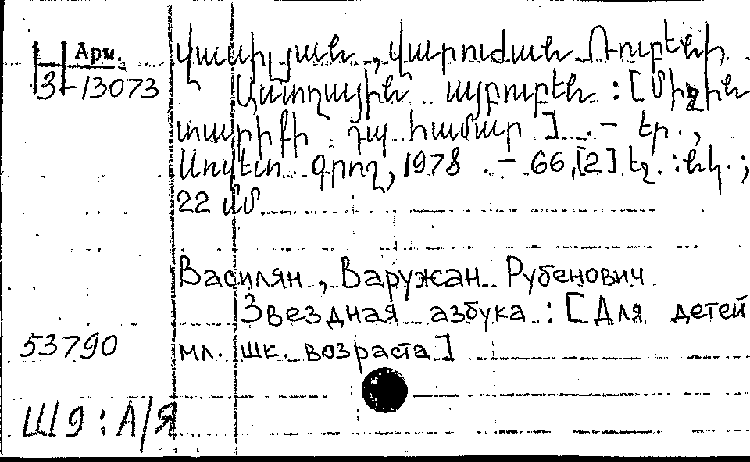 Арм.
3-13073
Վասիլյան, Վարուժան Ռուբենի
Աստղային այբուբեն : [Միջին
տարիքի դպ համար]. – Եր.,
Սովետ. գրող, 1978. – 66,[2] էջ. : նկ.;
22 սմ
Василян, Варужан Рубенович
Звездная азбука : [Для детей
53790 мл. шк. возраста]
Ш9 : А/Я